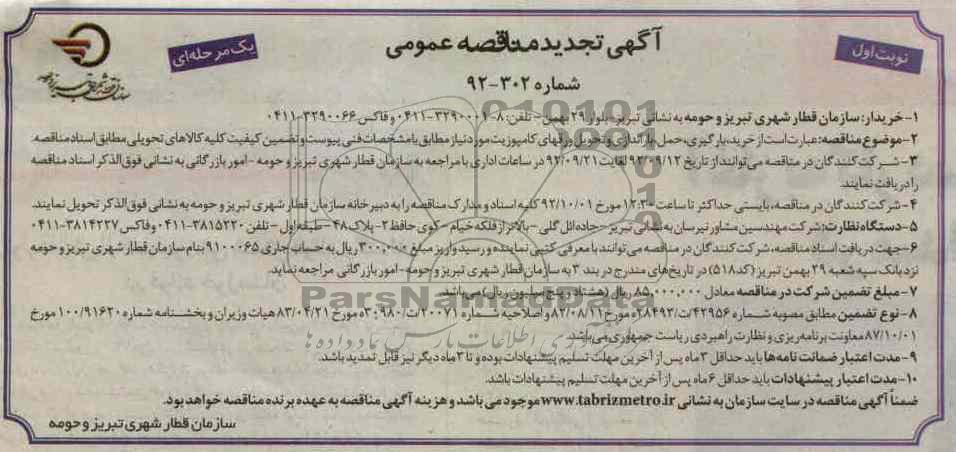 آگهی تجدید مناقصه عمومی
نوبت اول
یک مرحله‌ای
شماره ۳۰۲-۹۲
۱- خریدار: سازمان قطار شهری تبریز و حومه به نشانی تبریز - بلوار ۲۹ بهمن - تلفن: ۸-۳۲۹۰۰۰۱-۰۴۱۱ و فاکس ۳۲۹۰۰۶۶-۰۴۱۱
۲- موضوع مناقصه: عبارت است از خرید، بارگیری، حمل، باراندازی و تحویل ورقهای کامپوزیت مورد نیاز مطابق با مشخصات فنی پیوست و تضمین کیفیت کلیه کالاهای تحویلی مطابق اسناد مناقصه.
۳- شرکت کنندگان در مناقصه می‌توانند از تاریخ ۹۲/۰۹/۱۲ لغایت ۹۲/۰۹/۲۱ در ساعات اداری با مراجعه به سازمان قطار شهری تبریز و حومه - امور بازرگانی به نشانی فوق الذکر اسناد مناقصه
را دریافت نمایند.
۴- شرکت کنندگان در مناقصه، بایستی حداکثر تا ساعت ۱۲:۳۰ مورخ ۹۲/۱۰/۰۱ کلیه اسناد و مدارک مناقصه را به دبیرخانه سازمان قطار شهری تبریز و حومه به نشانی فوق الذکر تحویل نمایند.
۵- دستگاه نظارت: شرکت مهندسین مشاور تیرسان به نشانی تبریز - جاده ائل گلی - بالاتر از فلکه خیام - کوی حافظ ۲ - پلاک ۴۸ - طبقه اول - تلفن ۳۸۱۵۲۲۰-۰۴۱۱ و فاکس ۳۸۱۴۲۲۷-۰۴۱۱
۶- جهت دریافت اسناد مناقصه، شرکت کنندگان در مناقصه می‌توانند با معرفی کتبی نماینده و رسید واریز مبلغ ۳۰۰,۰۰۰ ریال به حساب جاری ۹۱۰۰۰۶۵ بنام سازمان قطار شهری تبریز و حومه
نزد بانک سپه شعبه ۲۹ بهمن تبریز (کد ۵۱۸) در تاریخ‌های مندرج در بند ۳ به سازمان قطار شهری تبریز و حومه - امور بازرگانی مراجعه نماید.
۷- مبلغ تضمین شرکت در مناقصه معادل ۸۵,۰۰۰,۰۰۰ ریال (هشتاد و پنج میلیون ریال) می‌باشد.
۸- نوع تضمین مطابق مصوبه شماره ۴۲۹۵۶/ت۲۸۴۹۳ه مورخ ۸۲/۰۸/۱۱ و اصلاحیه شماره ۲۰۰۷۱/ت۳۰۹۸۰ه مورخ ۸۳/۰۴/۲۱ هیات وزیران و بخشنامه شماره ۱۰۰/۹۱۶۲۰ مورخ
۸۷/۱۰/۰۱ معاونت برنامه‌ریزی و نظارت راهبردی ریاست جمهوری می‌باشد.
۹- مدت اعتبار ضمانت نامه‌ها باید حداقل ۳ ماه پس از آخرین مهلت تسلیم پیشنهادات بوده و تا ۳ ماه دیگر نیز قابل تمدید باشد.
۱۰- مدت اعتبار پیشنهادات باید حداقل ۶ ماه پس از آخرین مهلت تسلیم پیشنهادات باشد.
ضمناً آگهی مناقصه در سایت سازمان به نشانی www.tabrizmetro.ir موجود می باشد و هزینه آگهی مناقصه به عهده برنده مناقصه خواهد بود.
سازمان قطار شهری تبریز و حومه
ParsNamadData